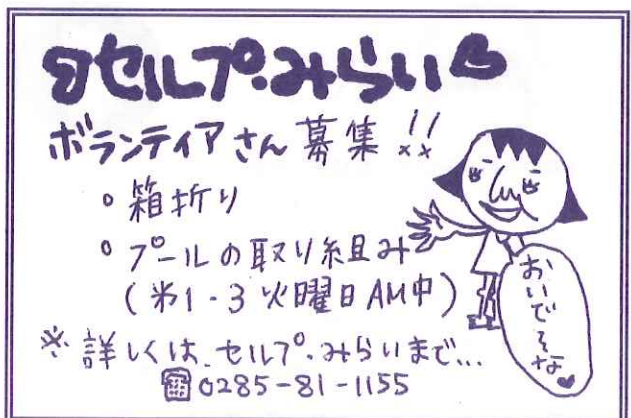 セルプ・みらい
ボランティアさん募集!!
。箱折り
。プールの取り組み
(第1・3火曜日AM中)
※詳しくは、セルプ・みらいまで…
☎0285-81-1155
おいでそな